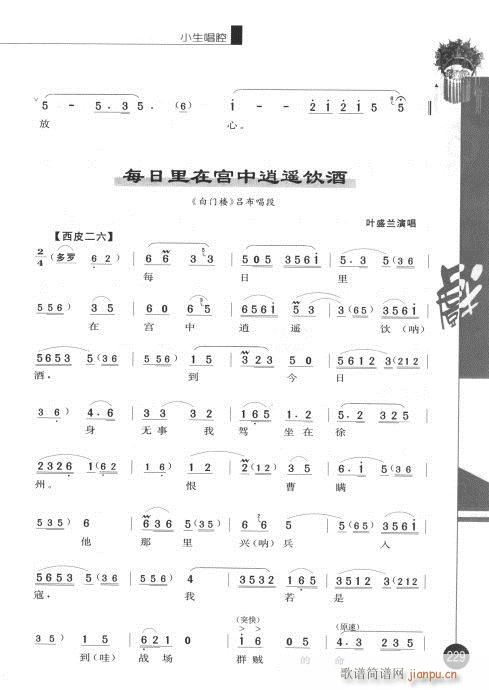 小生唱腔
5 - 5. 3 5. (6) | i - - 2 i 2 i 5 5 |
放 心。
每日里在宫中逍遥饮酒
《白门楼》吕布唱段
叶盛兰演唱
【西皮二六】
2/4 (多罗 6 2) | 6 6 3 3 | 5 0 5 3 5 6 i | 5. 3 5 |
每 日 里
5 5 6) 3 5 | 6 0 5 3 | 5 6 5 5 | 3 (6 5) 3 5 6 i |
在 宫 中 逍 遥 饮(呐)
5 6 5 3 5 (3 6 | 5 6) 1 5 | 3 2 3 5 0 | 5 6 1 2 3 (2 1 2 |
酒。 到 今 日
3 6) 4. 6 | 3 2 3 2 | 1 6 5 2 2 | 5. 2 3 2 5 |
身 无事我 驾坐在徐
2 3 2 6 1 (6 2 | 1) 1 2 | 2 (1 2) 5 | 4. 3 5 1 |
州。 恨 曹 瞒
5 3 5) 6 | 6 3 6 5 (3 5 | 6 6 5 | 3 (3 5) 3 5 6 i |
他 那里 兴(呐)兵 入
5 6 5 3 5 (3 6 | 5 6) 4 | 3 5 3 2 1 6 5 | 3 5 3 2 1 |
寇。 我 若 是
3 5) 1 5 | 6 2 1 0 | (突快) i 6 | (原速) 4. 3 2 3 5 |
到(哇) 战场 群贼 的命
229
歌谱简谱网
jianpu.cn